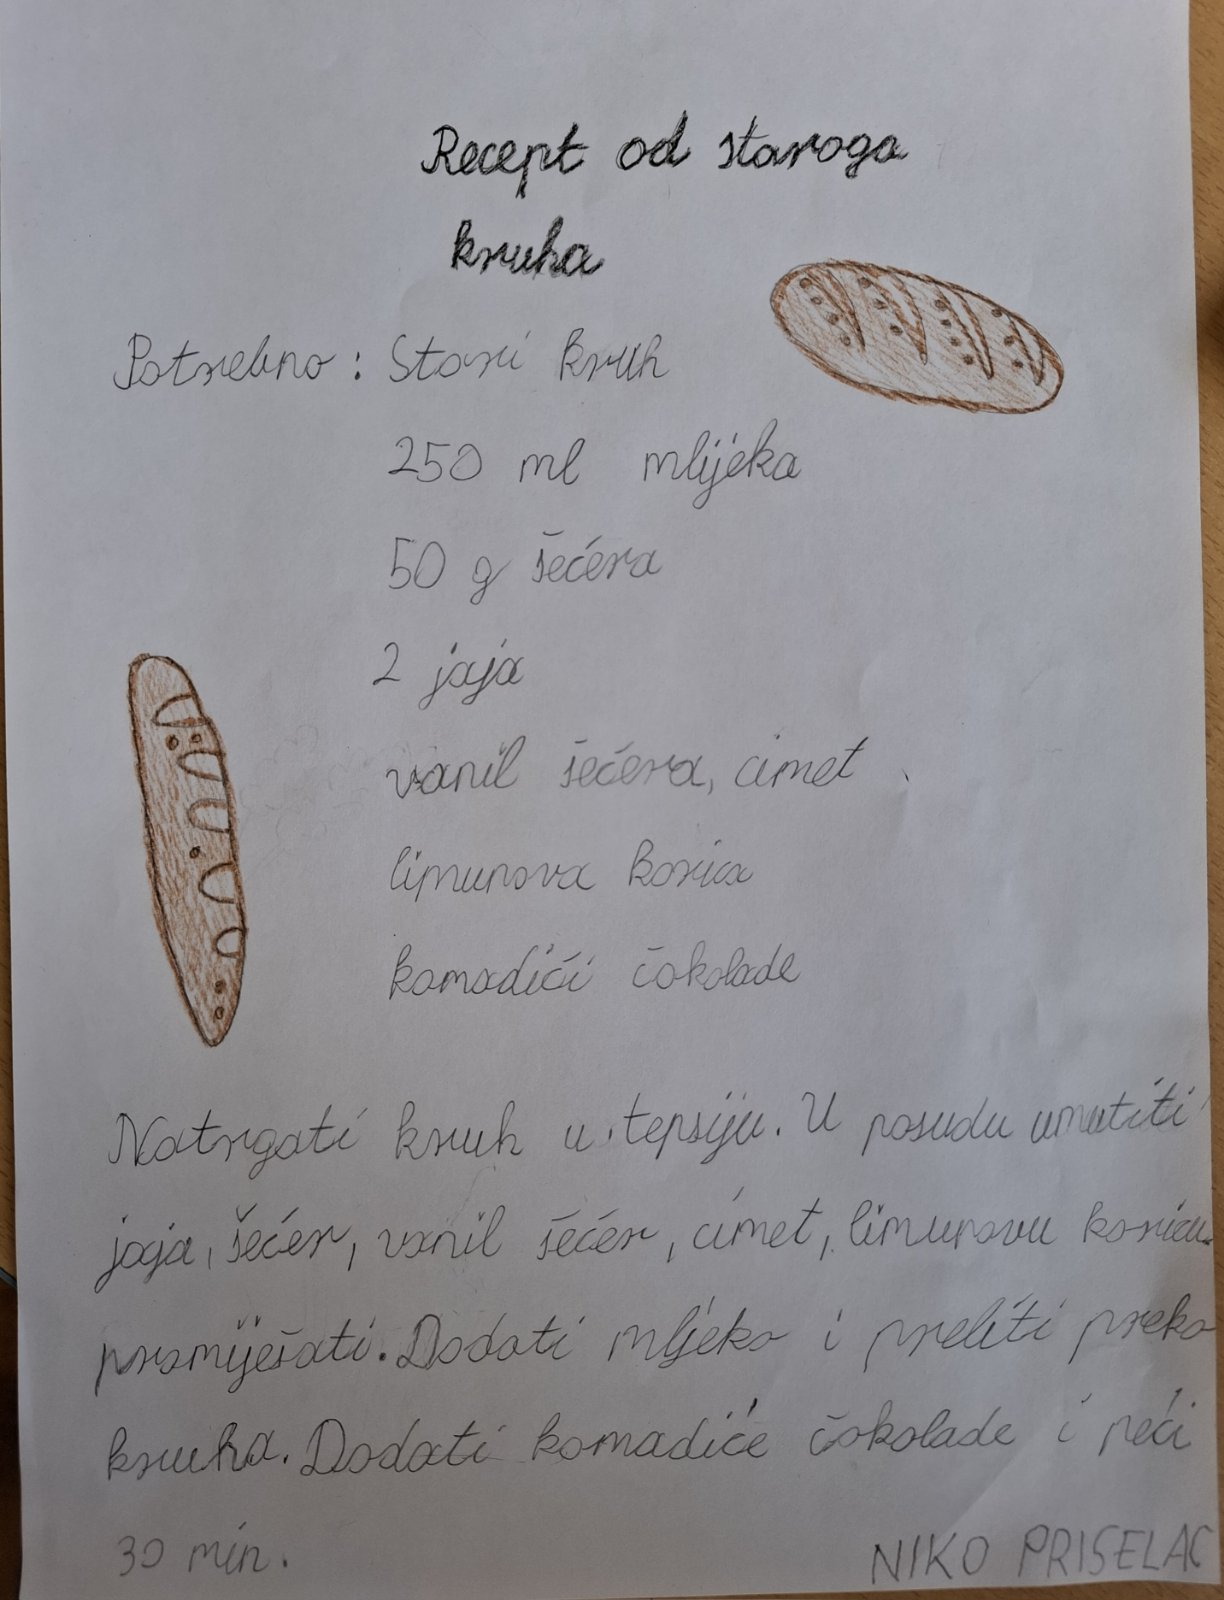 Recept od staroga
kruha
Potrebno: Stari kruh
250 ml mlijeka
50 g šećera
2 jaja
vanil šećera, cimet
limunova korica
komadići čokolade
Natrgati kruh u tepsiju. U posudu umutiti
jaja, šećer, vanil šećer, cimet, limunovu koricu.
promiješati. Dodati mljeko i preliti preko
kruha. Dodati komadiće čokolade i peći
30 min.
NIKO PRISELAC